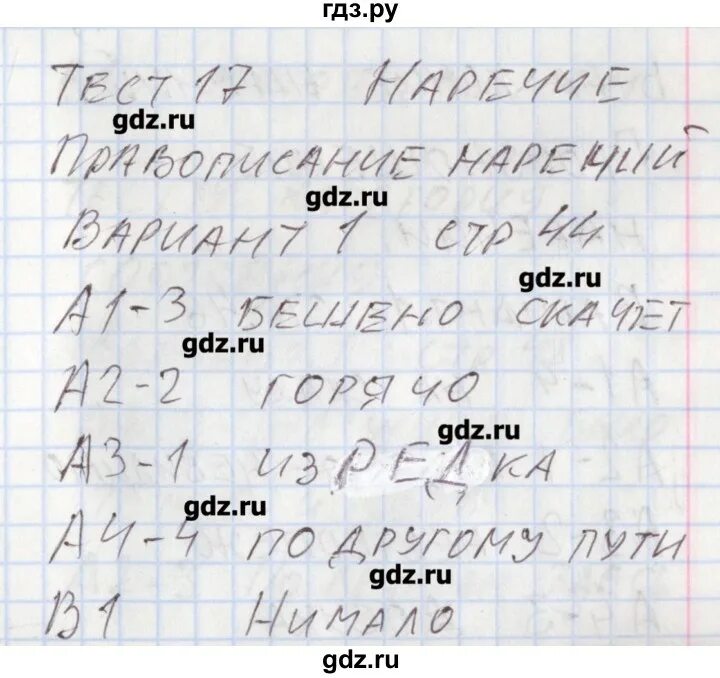 гдз.ру
ТЕСТ 17 НАРЕЧИЕ
gdz.ru
ПРАВОПИСАНИЕ НАРЕЧИЙ
gdz.ru
ВАРИАНТ 1 СТР 44
gdz.ru
А1-3 БЕШЕНО СКАЧЕТ
gdz.ru
А2-2 ГОРЯЧО
gdz.ru
А3-1 ИЗРЕДКА
gdz.ru
А4-4 ПО ДРУГОМУ ПУТИ
gdz.ru
В1 НИМАЛО
gdz.ru